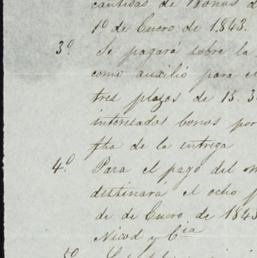 cantidad de Bonos d
1º de Enero de 1843.
3º Se pagará sobre la
como auxilio para e
tres plazos de 15. 3
interesados bonos por
fha de la entrega
4º Para el pago del
destinará el ocho p
de de Enero de 1843
Nicod y Cia
5º